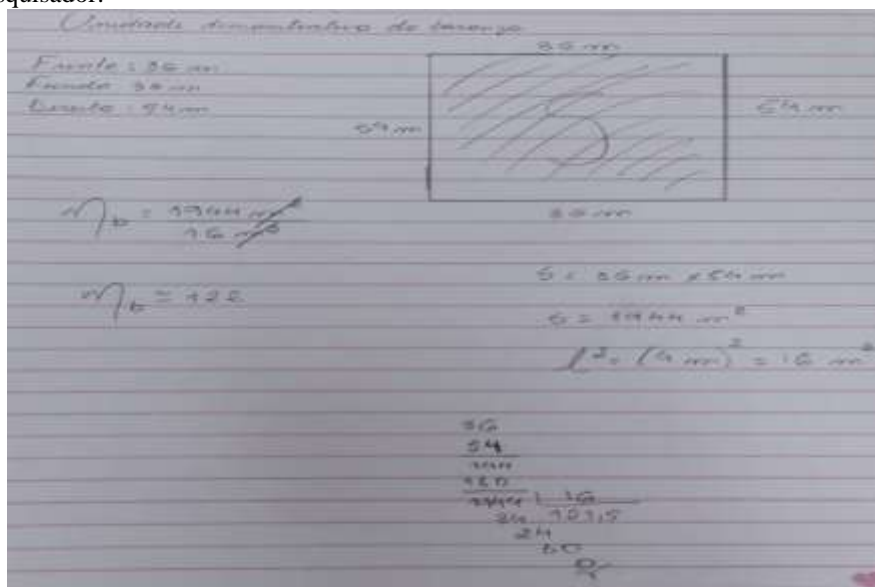 esquisador.
Unidade demonstrativa do terreno
Frente: 36 m
Fundo 36 m
Direito: 54 m
36 m
54 m
54 m
36 m
η_b = 1944 m²
16 m²
η_b = 122
S = 36 m x 54 m
S = 1944 m²
l² = (4 m)² = 16 m²
36
54
144
180
1944 | 16
34 121,5
24
80
0